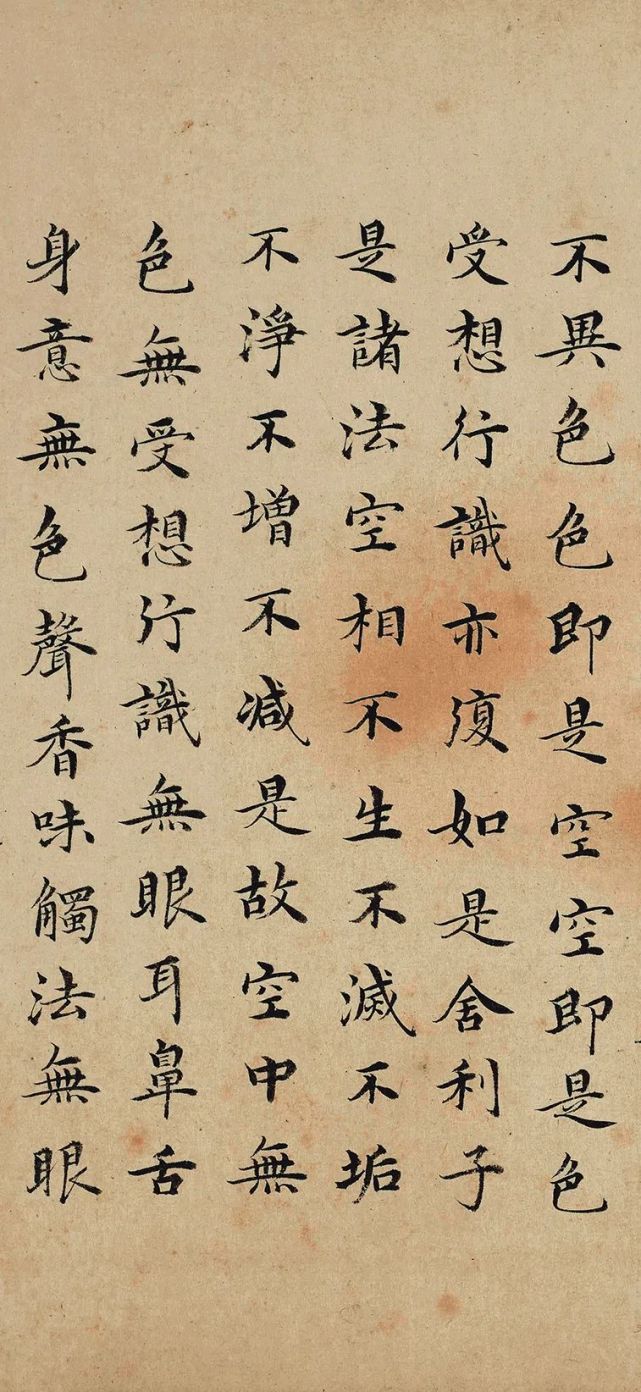 不異色色即是空空即是色
受想行識亦復如是舍利子
是諸法空相不生不滅不垢
不淨不增不減是故空中無
色無受想行識無眼耳鼻舌
身意無色聲香味觸法無眼